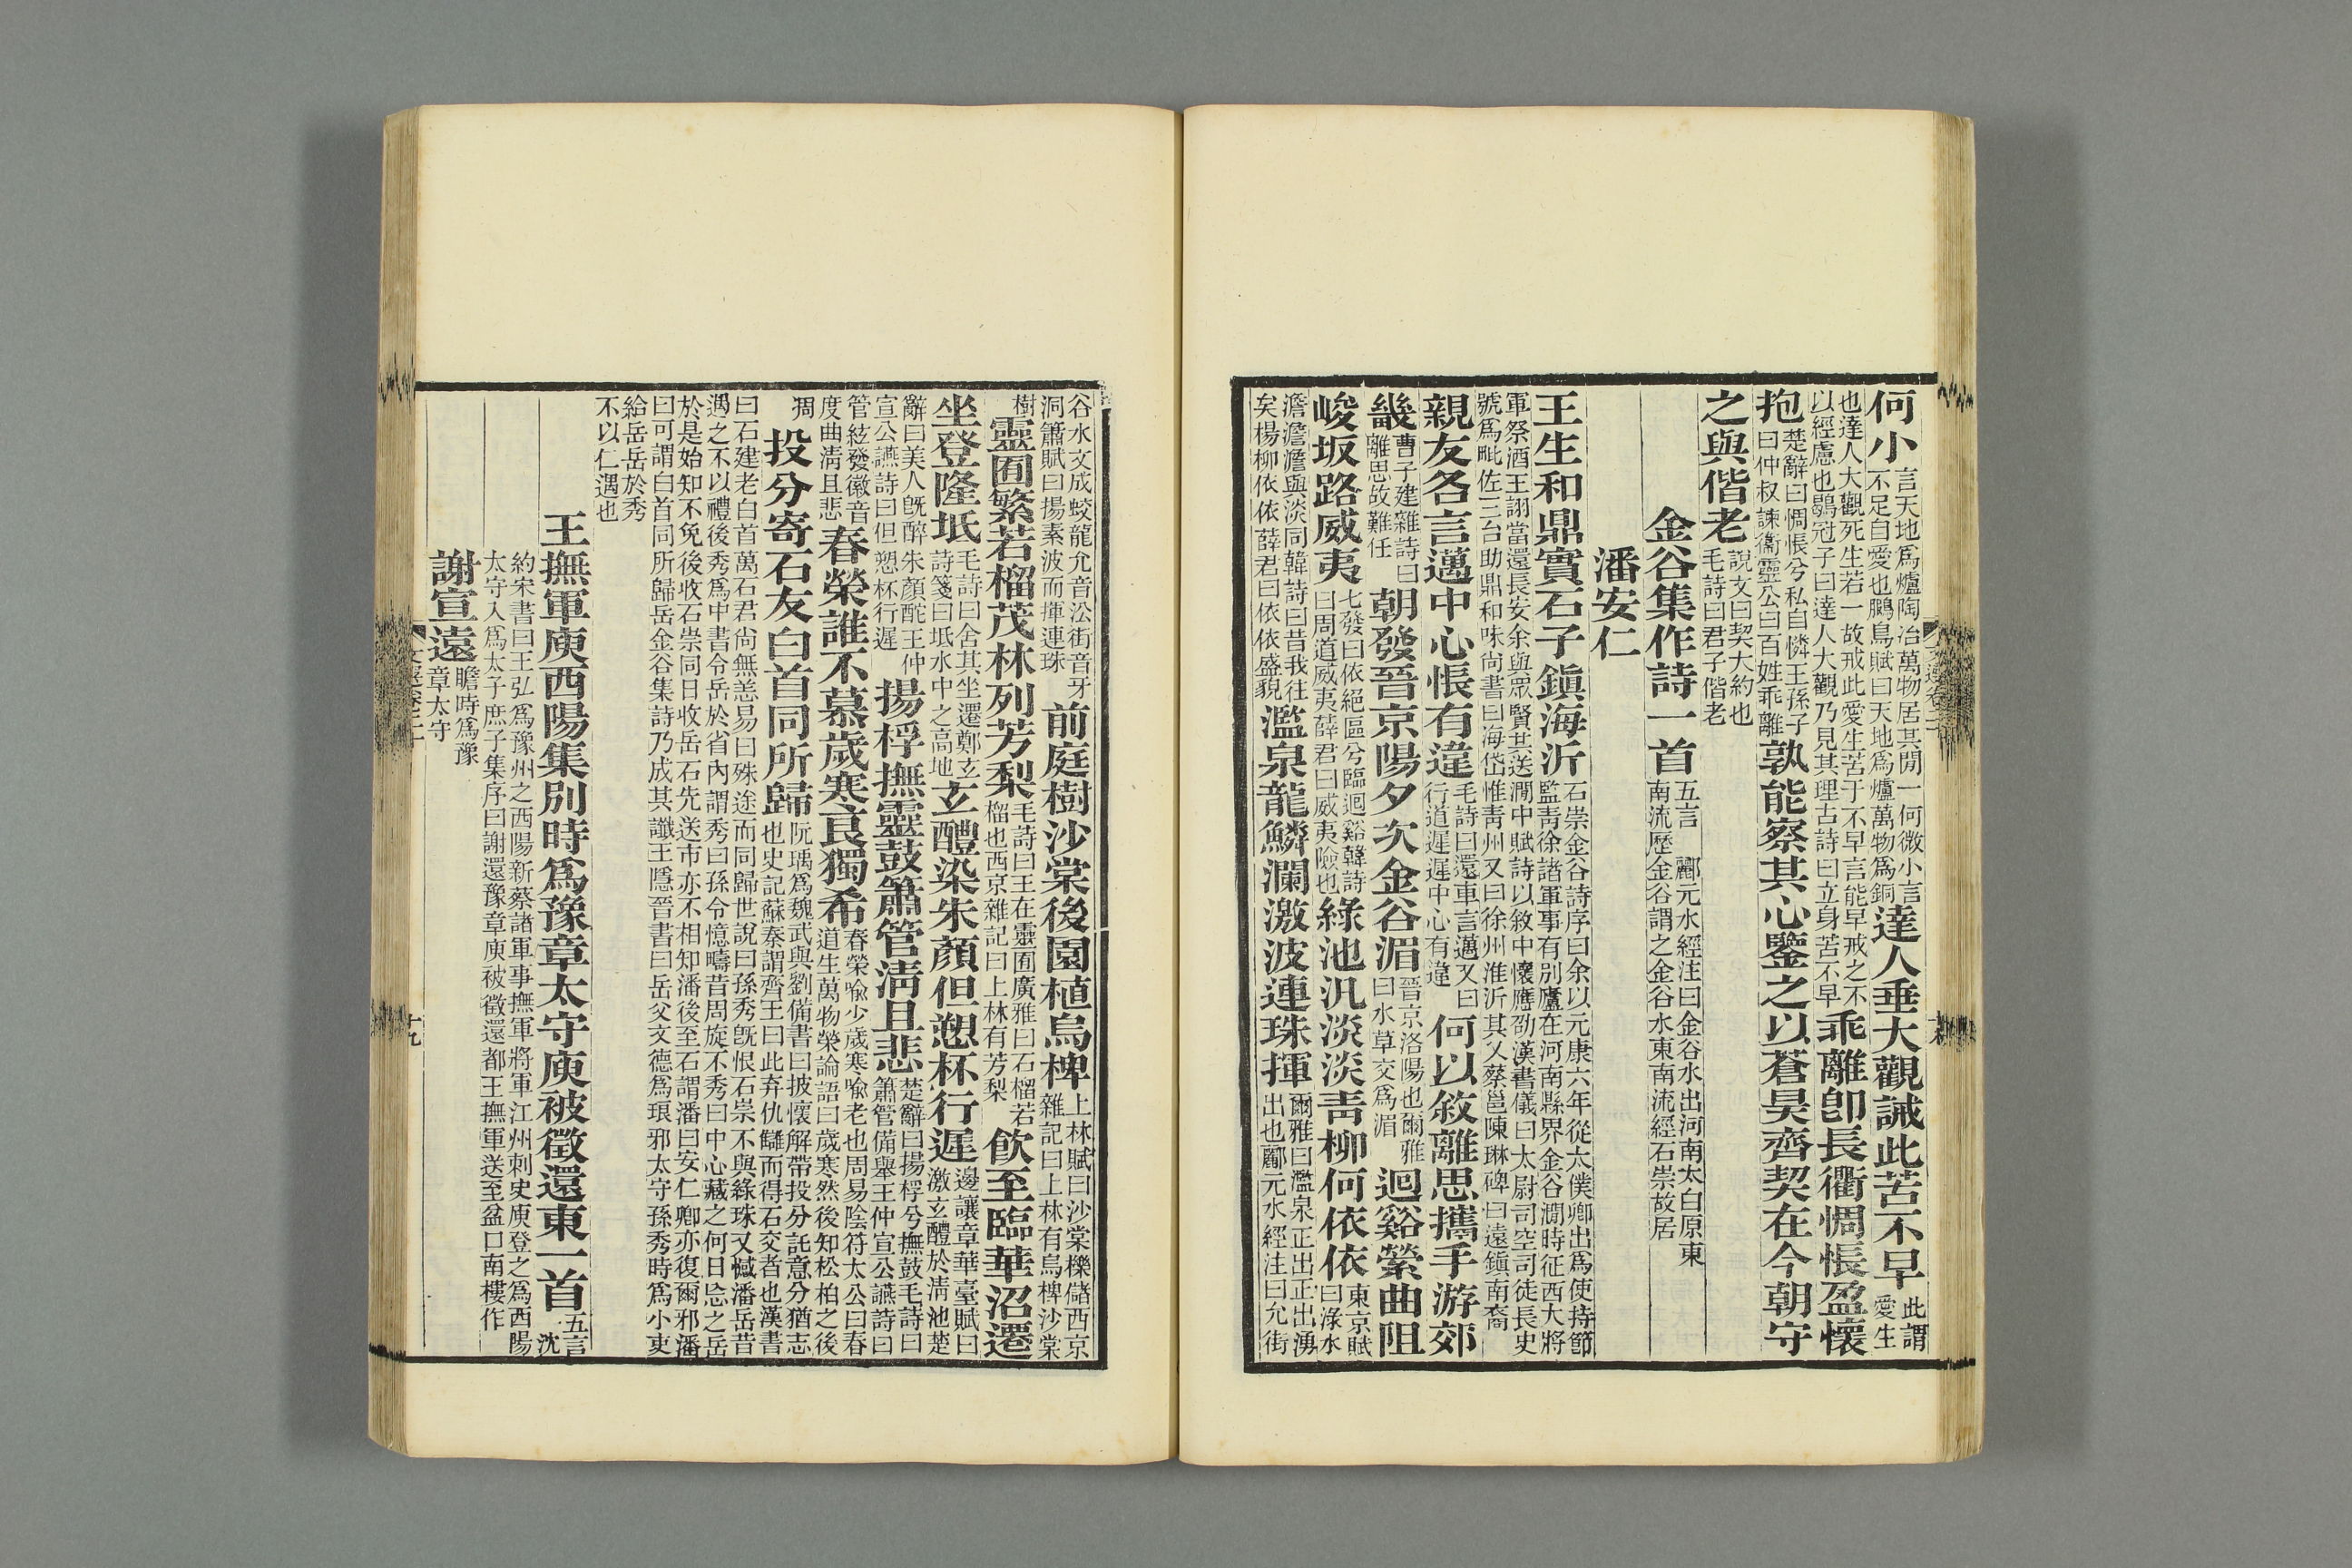 何小言天地爲爐陶冶萬物居其閒一何微小言不足自愛也鵩鳥賦曰天地爲爐萬物爲銅達人垂大觀誡此苦不早此謂愛生
也達人大觀死生若一故戒此愛生苦于不早言能早戒之不以經慮也鶡冠子曰達人大觀乃見其理古詩曰立身苦不早乖離卽長衢惆悵盈懷
抱楚辭曰惆悵兮私自憐王孫子曰仲叔諫衞靈公曰百姓乖離孰能察其心鑒之以蒼昊齊契在今朝守
之與偕老說文曰契大約也毛詩曰君子偕老
金谷集作詩一首五言 酈元水經注曰金谷水出河南太白原東南流歷金谷謂之金谷水東南流經石崇故居
潘安仁
王生和鼎實石子鎭海沂石崇金谷詩序曰余以元康六年從太僕卿出爲使持節監靑徐諸軍事有別廬在河南縣界金谷澗時征西大將
軍祭酒王詡當還長安余與眾賢共送澗中賦詩以敘中懷應劭漢書儀曰太尉司空司徒長史號爲毗佐三台助鼎和味尙書曰海岱惟靑州又曰徐州淮沂其乂蔡邕陳琳碑曰遠鎭南裔
親友各言邁中心悵有違毛詩曰還車言邁又曰行道遲遲中心有違何以敘離思攜手游郊
畿曹子建雜詩曰離思故難任朝發晉京陽夕次金谷湄晉京洛陽也爾雅曰水草交爲湄迴谿縈曲阻
峻坂路威夷七發曰依絕區兮臨迴谿韓詩曰周道威夷薛君曰威夷險也綠池汎淡淡靑柳何依依東京賦曰淥水
澹澹澹與淡同韓詩曰昔我往矣楊柳依依薛君曰依依盛貌濫泉龍鱗瀾激波連珠揮爾雅曰濫泉正出正出湧出也酈元水經注曰允街
谷水文成蛟龍允音沿街音牙洞簫賦曰揚素波而揮連珠前庭樹沙棠後園植烏椑上林賦曰沙棠櫟儲西京雜記曰上林有烏椑沙棠
樹靈囿繁若榴茂林列芳梨毛詩曰王在靈囿廣雅曰石榴若榴也西京雜記曰上林有芳梨飮至臨華沼遷
坐登隆坻毛詩曰舍其坐遷鄭玄詩箋曰坻水中之高地玄醴染朱顏但愬杯行遲邊讓章華臺賦曰激玄醴於淸池楚
辭曰美人旣醉朱顏酡王仲宣公讌詩曰但愬杯行遲揚桴撫靈鼓簫管淸且悲楚辭曰揚桴兮撫鼓毛詩曰簫管備舉王仲宣公讌詩曰
管絃發徽音度曲淸且悲春榮誰不慕歲寒良獨希春榮喻少歲寒喻老也周易陰符太公曰春道生萬物榮論語曰歲寒然後知松柏之後
凋投分寄石友白首同所歸阮瑀爲魏武與劉備書曰披懷解帶投分託意分猶志也史記蘇秦謂齊王曰此弃仇讎而得石交者也漢書
曰石建老白首萬石君尙無恙易曰殊途而同歸世說曰孫秀旣恨石崇不與綠珠又憾潘岳昔遇之不以禮後秀爲中書令岳於省內謂秀曰孫令憶疇昔周旋不秀曰中心藏之何日忘之岳
於是始知不免後收石崇同日收岳石先送市亦不相知潘後至石謂潘曰安仁卿亦復爾邪潘曰可謂白首同所歸岳金谷集詩乃成其讖王隱晉書曰岳父文德爲琅邪太守孫秀時爲小吏
給岳岳於秀不以仁遇也
王撫軍庾西陽集別時爲豫章太守庾被徵還東一首五言 沈
約宋書曰王弘爲豫州之西陽新蔡諸軍事撫軍將軍江州刺史庾登之爲西陽太守入爲太子庶子集序曰謝還豫章庾被徵還都王撫軍送至盆口南樓作
謝宣遠瞻時爲豫章太守